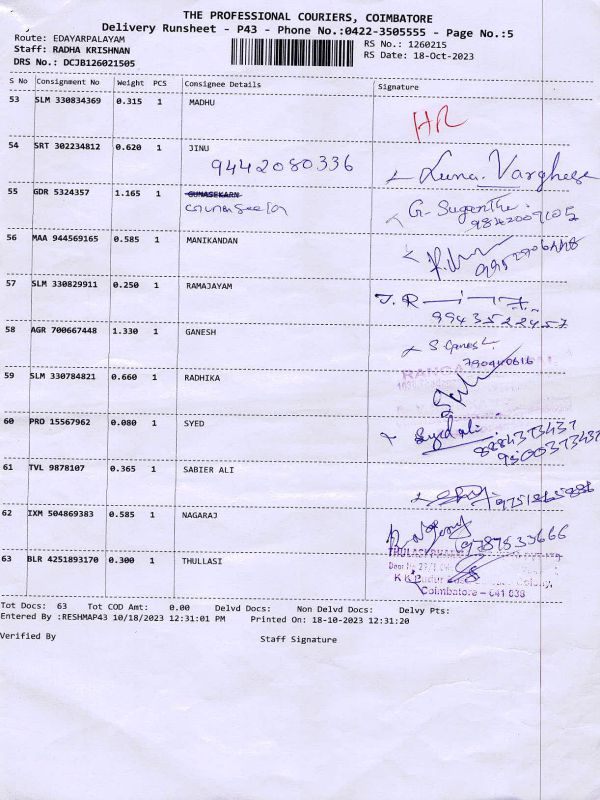 THE PROFESSIONAL COURIERS, COIMBATORE
Delivery Runsheet - P43 - Phone No.:0422-3505555 - Page No.:5
Route: EDAYARPALAYAM
RS No.: 1260215
Staff: RADHA KRISHNAN
RS Date: 18-Oct-2023
DRS No.: DCJB126021505
S No Consignment No Weight PCS Consignee Details Signature
53 SLM 330834369 0.315 1 MADHU HR
54 SRT 302234812 0.620 1 JINU
9442080336 Varghese
55 GDR 5324357 1.165 1 GUNASEKARN G. Sugantha
56 MAA 944569165 0.585 1 MANIKANDAN
57 SLM 330829911 0.250 1 RAMAJAYAM J.R
9943522457
58 AGR 700667448 1.330 1 GANESH S Ganesh
59 SLM 330784821 0.660 1 RADHIKA
60 PRO 15567962 0.080 1 SYED Syed ali
8284373437
9500373437
61 TVL 9878107 0.365 1 SABIER ALI
9751865886
62 IXM 504869383 0.585 1 NAGARAJ
9787533666
63 BLR 4251893170 0.300 1 THULLASI
Colony,
Coimbatore - 641 038
Tot Docs: 63 Tot COD Amt: 0.00 Delvd Docs: Non Delvd Docs: Delvy Pts:
Entered By :RESHMAP43 10/18/2023 12:31:01 PM Printed On: 18-10-2023 12:31:20
Verified By Staff Signature